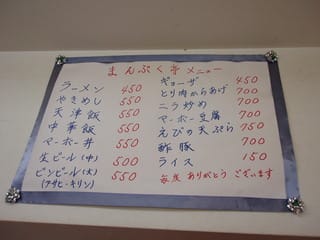 まんぷく亭メニュー
ラーメン 450
やきめし 550
天津飯 550
中華飯 550
マーボー丼 550
生ビール(中) 500
ビンビール(大) 550
(アサヒ・キリン)
ギョーザ 450
とり肉からあげ 700
ニラ炒め 700
マーボー豆腐 700
えびの天ぷら 750
酢豚 700
ライス 150
毎度ありがとうございます